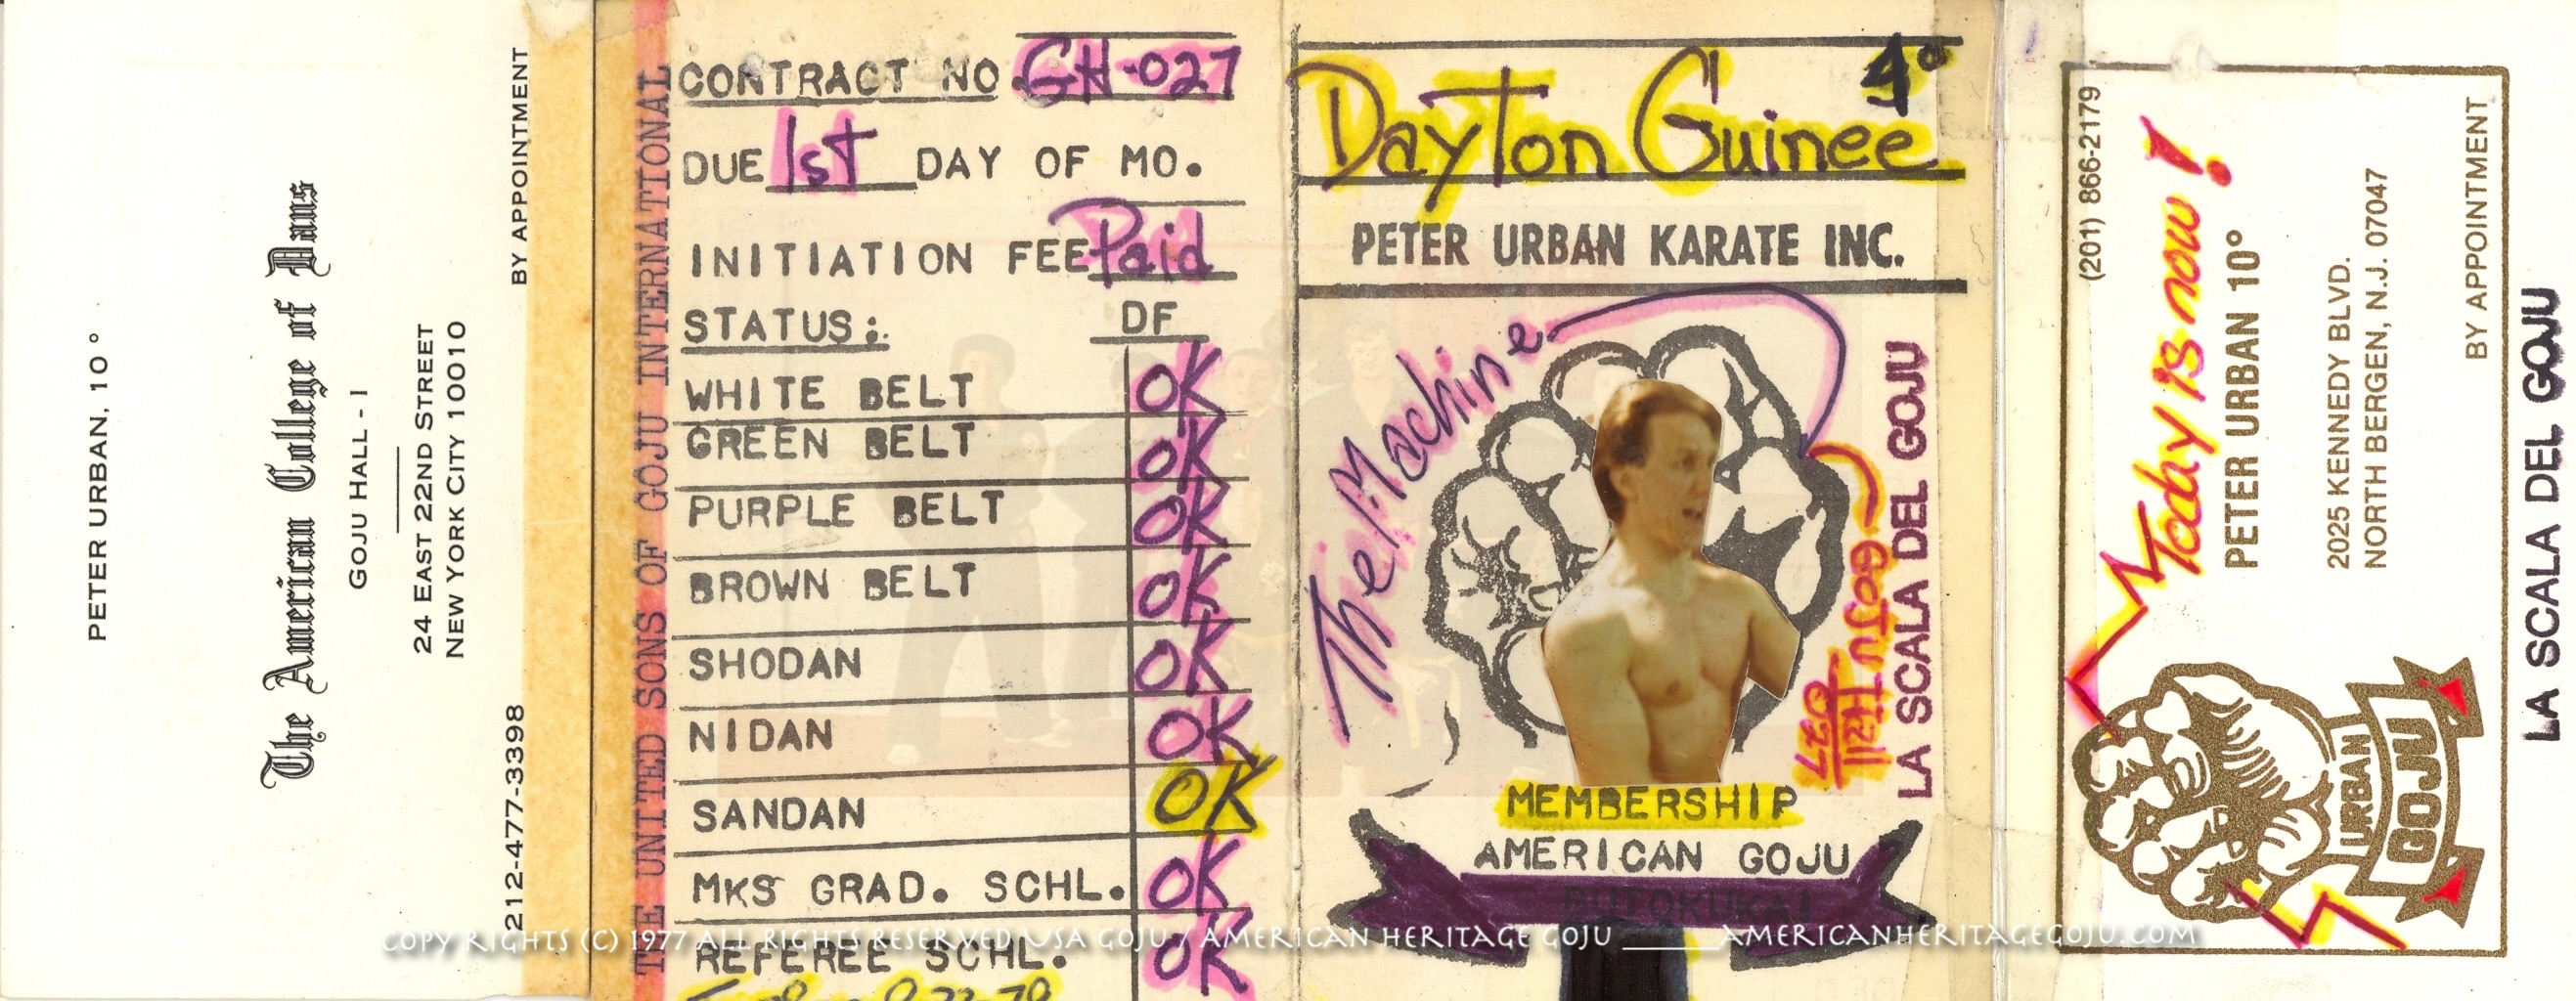 PETER URBAN, 10°
The American College of Dans
GOJU HALL - I
24 EAST 22ND STREET
NEW YORK CITY 10010
212-477-3398 BY APPOINTMENT
THE UNITED SONS OF GOJU INTERNATIONAL
CONTRACT NO. GH-027
DUE 1st DAY OF MO.
INITIATION FEE Paid
STATUS: DF
WHITE BELT OK
GREEN BELT OK
PURPLE BELT OK
BROWN BELT OK
SHODAN OK
NIDAN OK
SANDAN OK
MKS GRAD. SCHL. OK
REFEREE SCHL. OK
4°
Dayton Guinee
PETER URBAN KARATE INC.
The Machine
GOJU Hall
027
LA SCALA DEL GOJU
MEMBERSHIP
AMERICAN GOJU
BUTOKUKAI
(201) 866-2179
Today is now!
PETER URBAN 10°
2025 KENNEDY BLVD.
NORTH BERGEN, N.J. 07047
BY APPOINTMENT
URBAN
GOJU
LA SCALA DEL GOJU
COPY RIGHTS (C) 1977 ALL RIGHTS RESERVED USA GOJU / AMERICAN HERITAGE GOJU ______AMERICANHERITAGEGOJU.COM